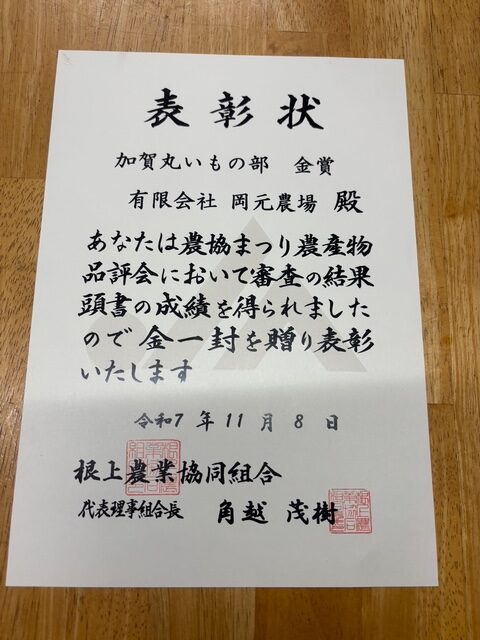 表彰状
加賀丸いもの部 金賞
有限会社 岡元農場 殿
あなたは農協まつり農産物
品評会において審査の結果
頭書の成績を得られました
ので金一封を贈り表彰
いたします
令和7年11月8日
根上農業協同組合
代表理事組合長 角越 茂樹